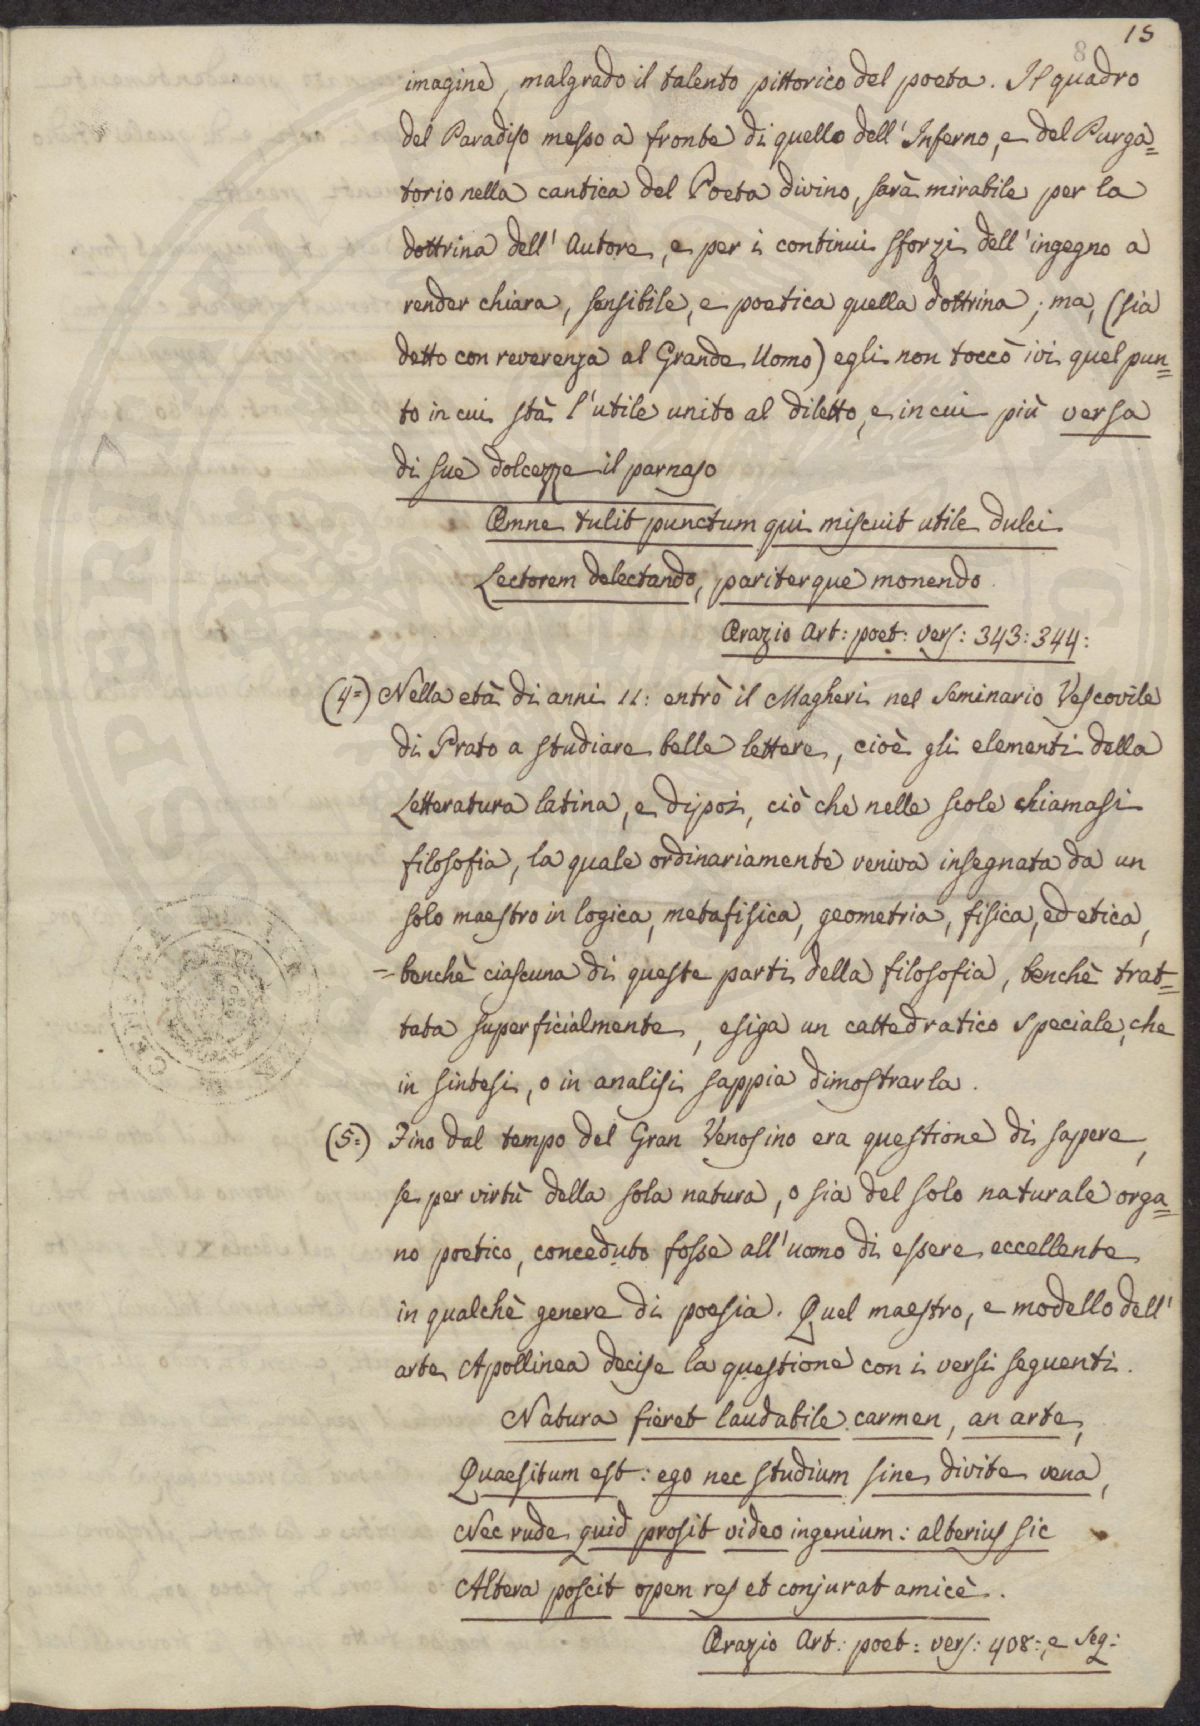 15
8
imagine, malgrado il talento pittorico del poeta. Il quadro
del Paradiso messo a fronte di quello dell'Inferno, e del Purga=
torio nella cantica del Poeta divino, sarà mirabile per la
dottrina dell'Autore, e per i continui sforzi dell'ingegno a
render chiara, sensibile, e poetica quella dottrina; ma, (sia
detto con reverenza al Grande Uomo) egli non toccò ivi quel pun=
to in cui stà l'utile unito al diletto, e in cui più versa
di sue dolcezze il parnaso
Omne tulit punctum qui miscuit utile dulci
Lectorem delectando, pariterque monendo.
Orazio Art: poet: vers: 343: 344:
(4=) Nella età di anni 11: entrò il Magheri nel Seminario Vescovile
di Prato a studiare belle lettere, cioè gli elementi della
Letteratura latina, e dipoi, ciò che nelle scole chiamasi
filosofia, la quale ordinariamente veniva insegnata da un
solo maestro in logica, metafisica, geometria, fisica, ed etica,
=benchè ciascuna di queste parti della filosofia, benchè trat=
tata superficialmente, esiga un cattedratico speciale, che
in sintesi, o in analisi sappia dimostrarla.
(5=) Fino dal tempo del Gran Venosino era questione di sapere,
se per virtù della sola natura, o sia del solo naturale orga=
no poetico, conceduto fosse all'uomo di essere eccellente
in qualchè genere di poesia. Quel maestro, e modello dell'
arte Apollinea decise la questione con i versi seguenti.
Natura fieret laudabile carmen, an arte,
Quaesitum est: ego nec studium sine divite vena,
Nec rude quid prosit video ingenium: alterius sic
Altera poscit opem res et conjurat amicè.
Orazio Art: poet: vers: 408:, e seq: